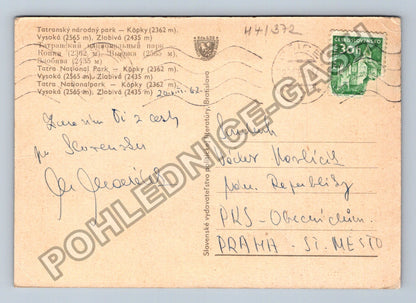 Tatranský národný park — Kôpky (2362 m).
Vysoká (2565 m), Zlobivá (2435 m)
Татранский национальный парк —
Копки (2362 м), Высока (2565 м),
Злобива (2435 м)
Tatra National Park — Kôpky (2362 m),
Vysoká (2565 m), Zlobivá (2435 m)
Tatra Nationalpark — Kôpky (2362 m),
Vysoká (2565 m), Zlobivá (2435 m)
44/372
ČESKOSLOVENSKO
30h
Zdravím Ti z cesty
po Slovensku
Slovenské vydavateľstvo literatúry, Bratislava
Havlíček
nám. Republiky
PKS - Obecní dům
PRAHA - ST. MĚSTO
POHLEDNICE-GASH